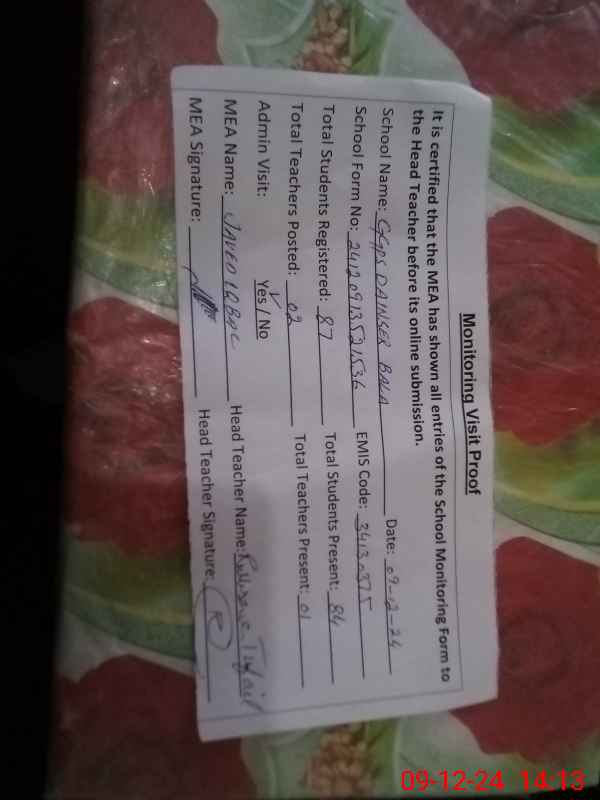 Monitoring Visit Proof
It is certified that the MEA has shown all entries of the School Monitoring Form to
the Head Teacher before its online submission.
School Name: GGPS DAINSER BALA Date: 09-12-24
School Form No: 24120913521536 EMIS Code: 34130375
Total Students Registered: 87 Total Students Present: 84
Total Teachers Posted: 02 Total Teachers Present: 01
Admin Visit: Yes / No
MEA Name: JAVED IQBAL Head Teacher Name: Tufail
MEA Signature: Head Teacher Signature:
09-12-24 14:13